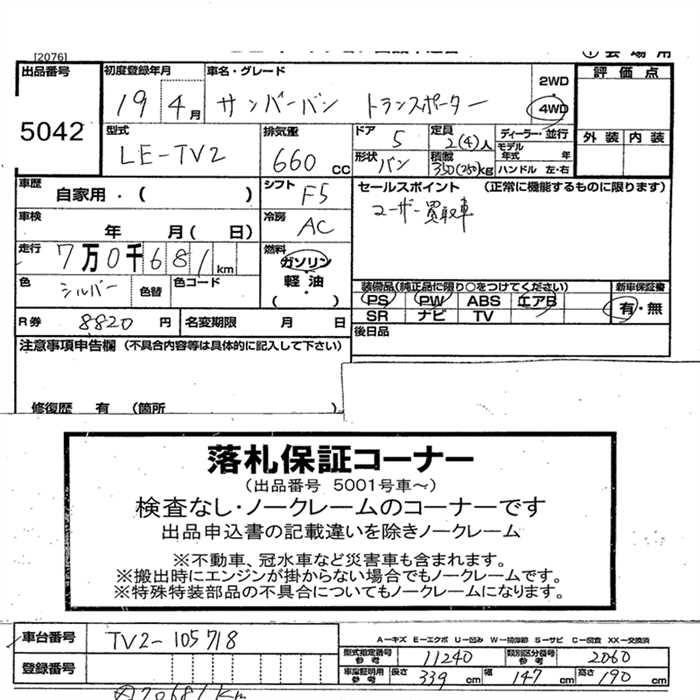 [2076]
① 会場用
出品番号 初度登録年月 車名・グレード 2WD 評価点
5042 19 4月 サンバーバン トランスポーター 4WD
型式 排気量 ドア 定員 ディーラー・並行 外装 内装
LE-TV2 660CC 5 2(4)人 モデル年式 年
形状 バン 積載 350(250)kg ハンドル 左・右
車歴 自家用・( ) シフト F5 セールスポイント (正常に機能するものに限ります)
車検 年 月( 日) 冷房 AC ユーザー買取車
走行 7万0千681km 燃料 ガソリン
軽油
( )
色 シルバー 色替 色コード 装備品(純正品に限り○をつけてください) 新車保証書
PS PW ABS エアB 有・無
R券 8820円 名変期限 月 日 SR ナビ TV
注意事項申告欄 (不具合内容等は具体的に記入して下さい) 後日品
修復歴 有 (箇所 )
落札保証コーナー
(出品番号 5001号車~)
検査なし・ノークレームのコーナーです
出品申込書の記載違いを除きノークレーム
※不動車、冠水車など災害車も含まれます。
※搬出時にエンジンが掛からない場合でもノークレームです。
※特殊特装部品の不具合についてもノークレームになります。
車台番号 TV2-105718 A-キズ E-エクボ U-凹み W-補修跡 S-サビ C-腐食 XX-交換済
型式指定番号 参考 11240 類別区分番号 参考 2060
登録番号 車庫証明用 参考 長さ 339cm 幅 147cm 高さ 190cm
70681Km